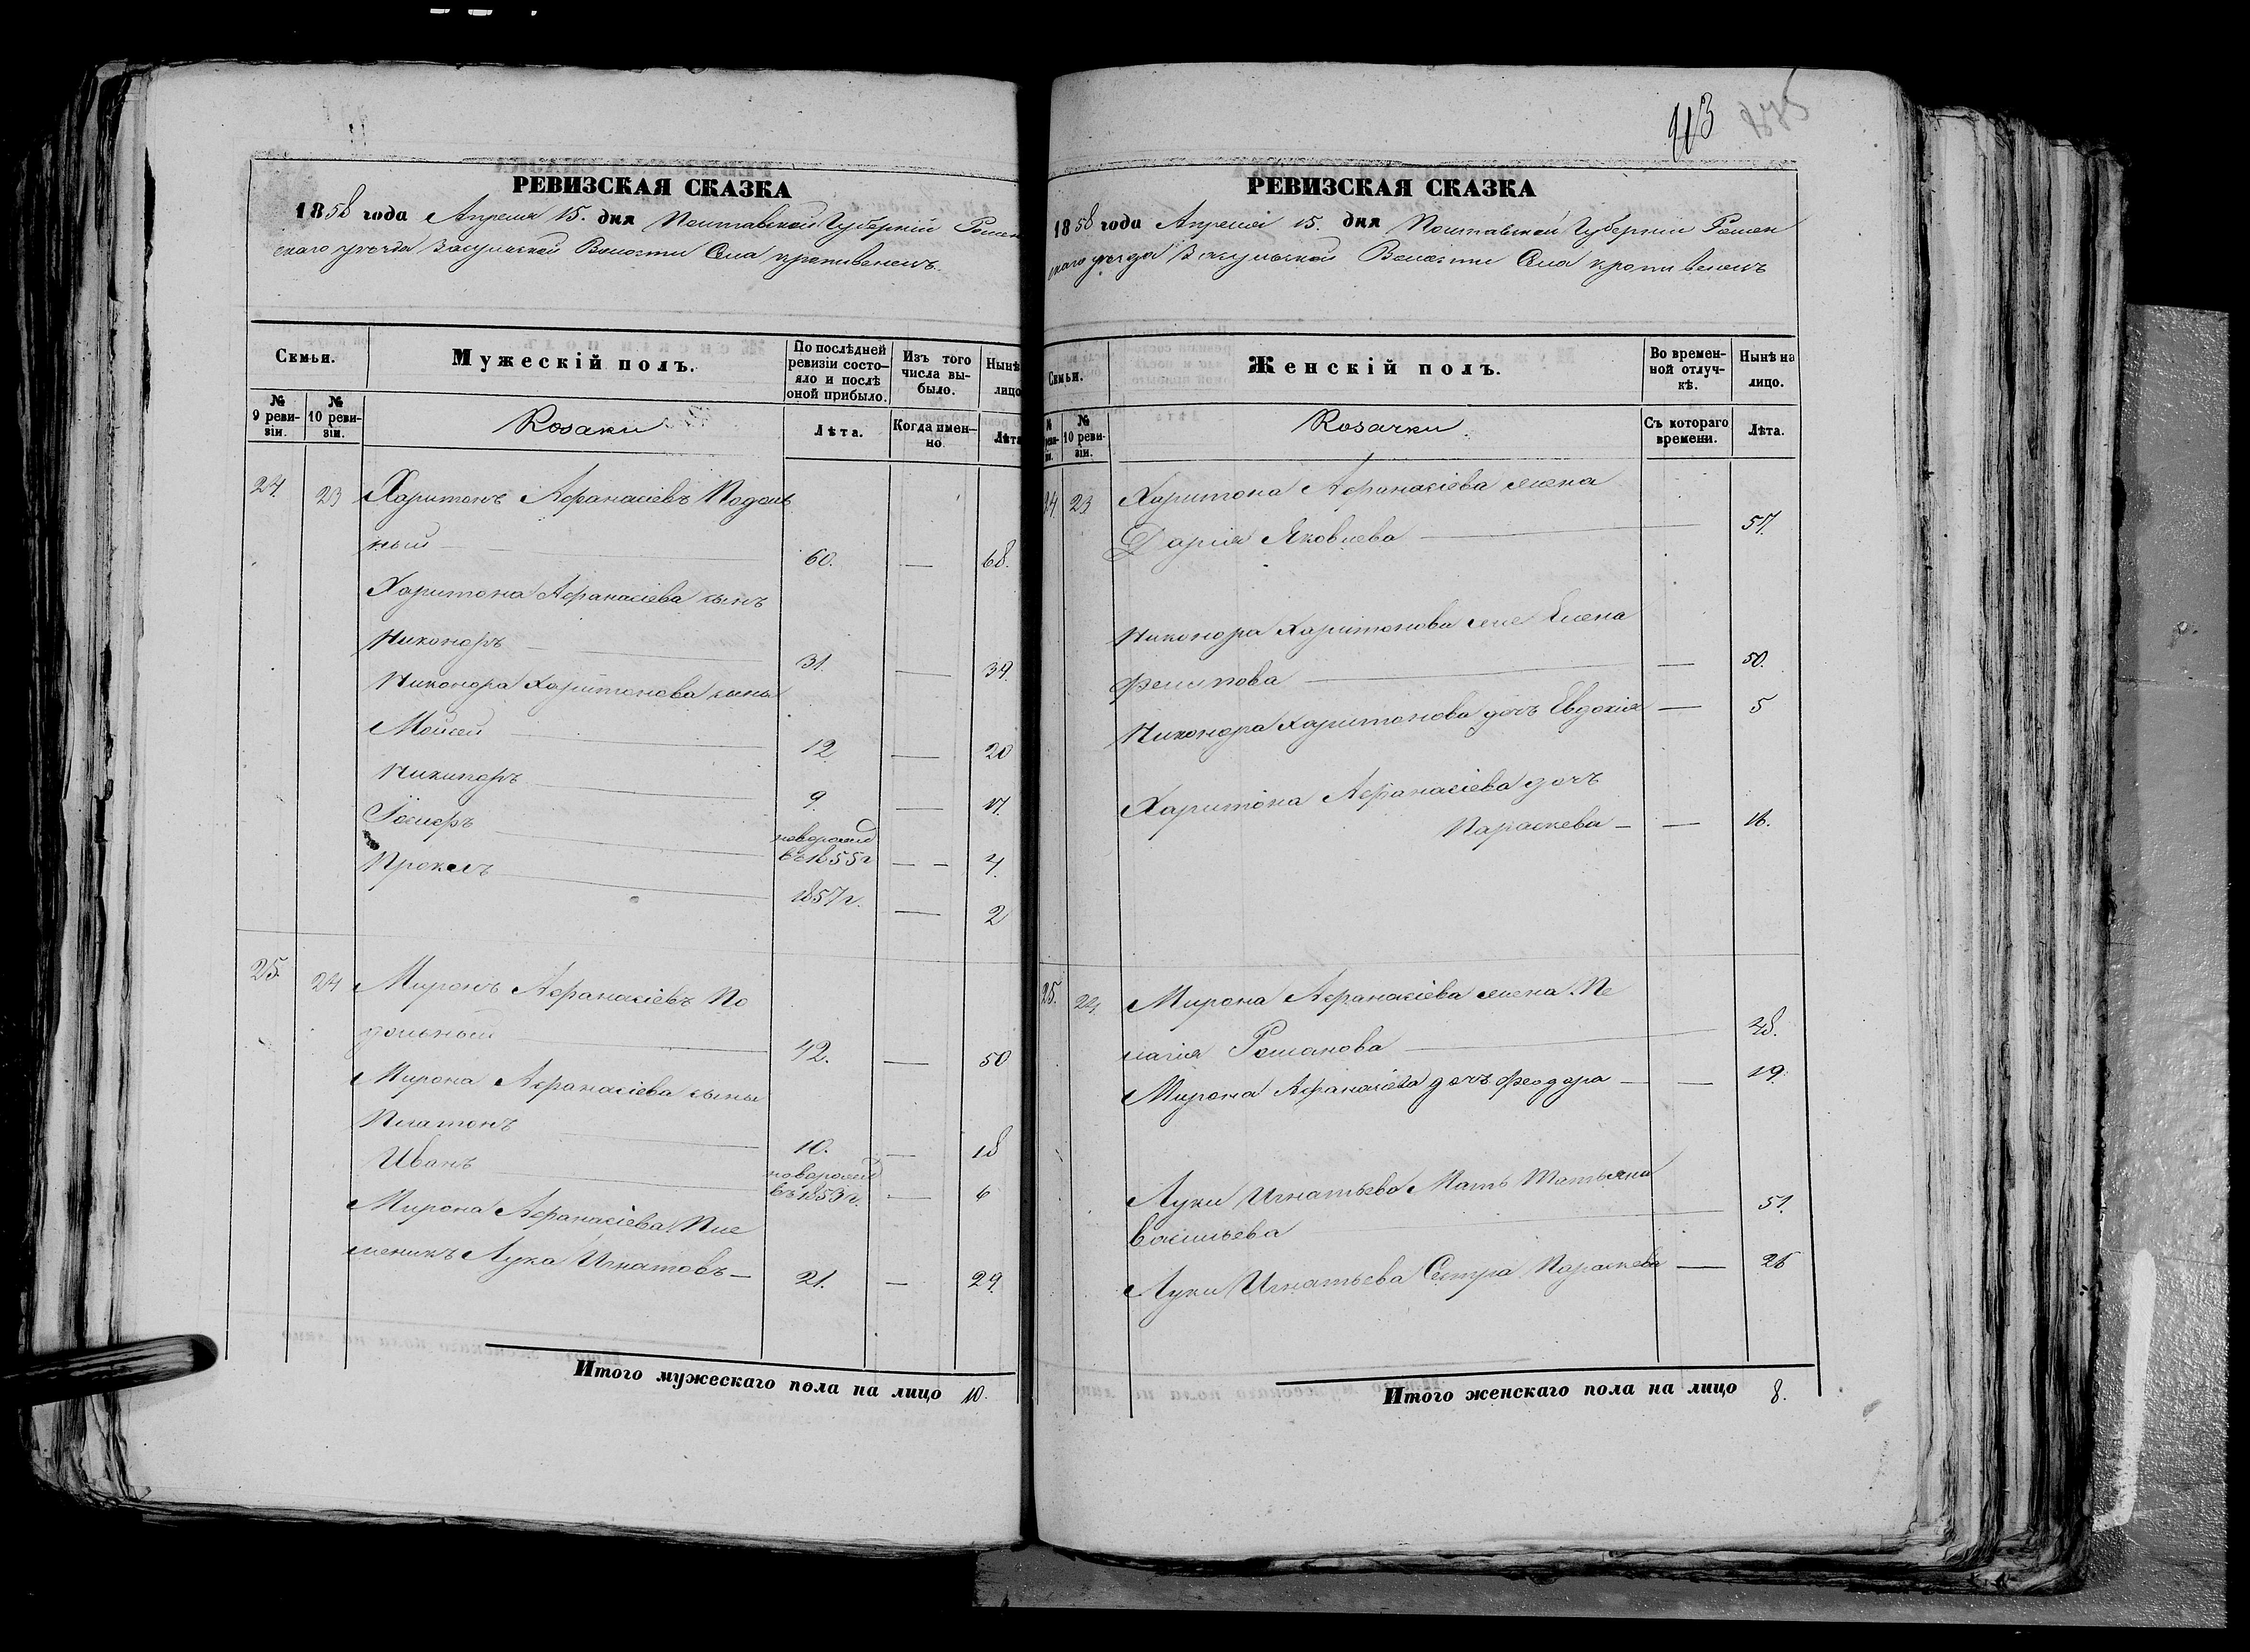 РЕВИЗСКАЯ СКАЗКА
1858 года Апреля 15. дня Полтавской Губерніи Ромен
скаго уезда Засульской Волости Села Кропивенецъ
Семьи.
Мужескій полъ.
По послѣдней ревизіи состо-
яло и послѣ
оной прибыло.
Изъ того
числа вы-
было.
Нынѣ
лицо
№
9 реви-
зіи.
№
10 реви-
зіи.
Козаки
Лѣта.
Когда имен-
но.
Лѣта
24 23 Харитонъ Афанасіевъ Подоль
ный — 60. — 68.
Харитона Афанасіева сынъ
Никоноръ — 31. — 39.
Никонора Харитонова сыны
Мойсей 12 — 20
Никипоръ 9. — 17.
Іосифъ новорожд
въ 1855г — 4.
Прокопъ 1857г. — 2
25. 24 Миронъ Афанасіевъ По
дольный 42. — 50
Мирона Афанасіева сыны
Платонъ 10. — 18
Иванъ новорожд
въ 1853г. — 6
Мирона Афанасіева Пле
меникъ Лука Игнатовъ — 21. — 29.
Итого мужескаго пола на лицо 10.
113
РЕВИЗСКАЯ СКАЗКА
1858 года Апреля 15. дня Полтавской Губерніи Ромен
скаго уезда Засульской Волости Села Кропивенецъ
Семьи.
Женскій полъ.
Во времен-
ной отлуч-
кѣ.
Нынѣ на
лицо.
№
10 реви-
зіи.
Козачки.
Съ котораго
времени.
Лѣта.
24 23 Харитона Афанасіева жена
Дарія Яковлева — 57.
Никонора Харитонова же Елена
Филипова — — 50.
Никонора Харитонова дочь Евдокія — 5
Харитона Афанасіева дочь
Параскева — — 16.
25. 24. Мирона Афанасіева жена Пе
лагія Романова — 48.
Мирона Афанасіева дочь Феодора — — 19.
Луки Игнатьева Мать Татьяна
Васильева 51.
Луки Игнатьева Сестра Параскева — 26
Итого женскаго пола на лицо 8.